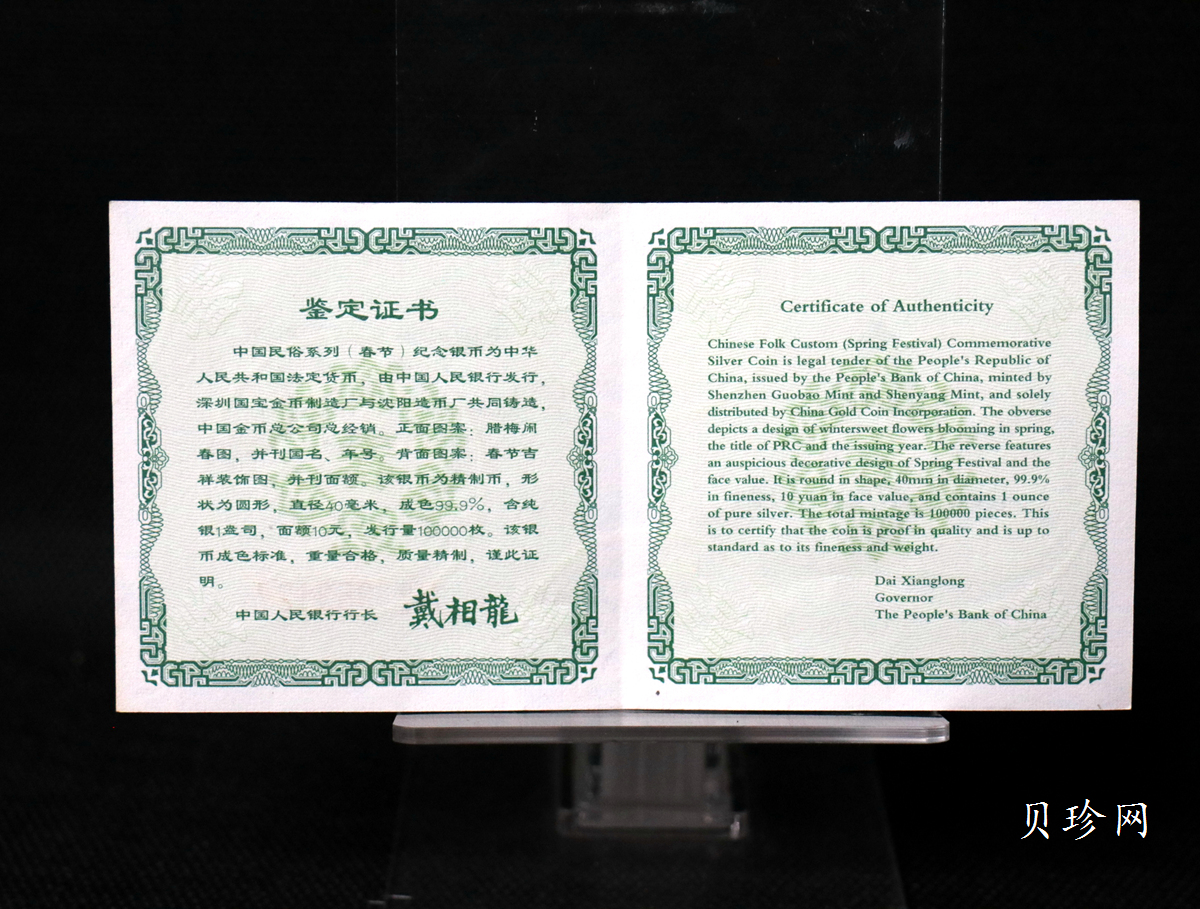 鉴定证书
中国民俗系列（春节）纪念银币为中华
人民共和国法定货币，由中国人民银行发行，
深圳国宝金币制造厂与沈阳造币厂共同铸造，
中国金币总公司总经销。正面图案：腊梅闹
春图，并刊国名、年号。背面图案：春节吉
祥装饰图，并刊面额。该银币为精制币，形
状为圆形，直径40毫米，成色99.9%，含纯
银1盎司，面额10元，发行量100000枚。该银
币成色标准，重量合格，质量精制，谨此证
明。
中国人民银行行长 戴相龍
Certificate of Authenticity
Chinese Folk Custom (Spring Festival) Commemorative
Silver Coin is legal tender of the People's Republic of
China, issued by the People's Bank of China, minted by
Shenzhen Guobao Mint and Shenyang Mint, and solely
distributed by China Gold Coin Incorporation. The obverse
depicts a design of wintersweet flowers blooming in spring,
the title of PRC and the issuing year. The reverse features
an auspicious decorative design of Spring Festival and the
face value. It is round in shape, 40mm in diameter, 99.9%
in fineness, 10 yuan in face value, and contains 1 ounce
of pure silver. The total mintage is 100000 pieces. This
is to certify that the coin is proof in quality and is up to
standard as to its fineness and weight.
Dai Xianglong
Governor
The People's Bank of China
贝珍网